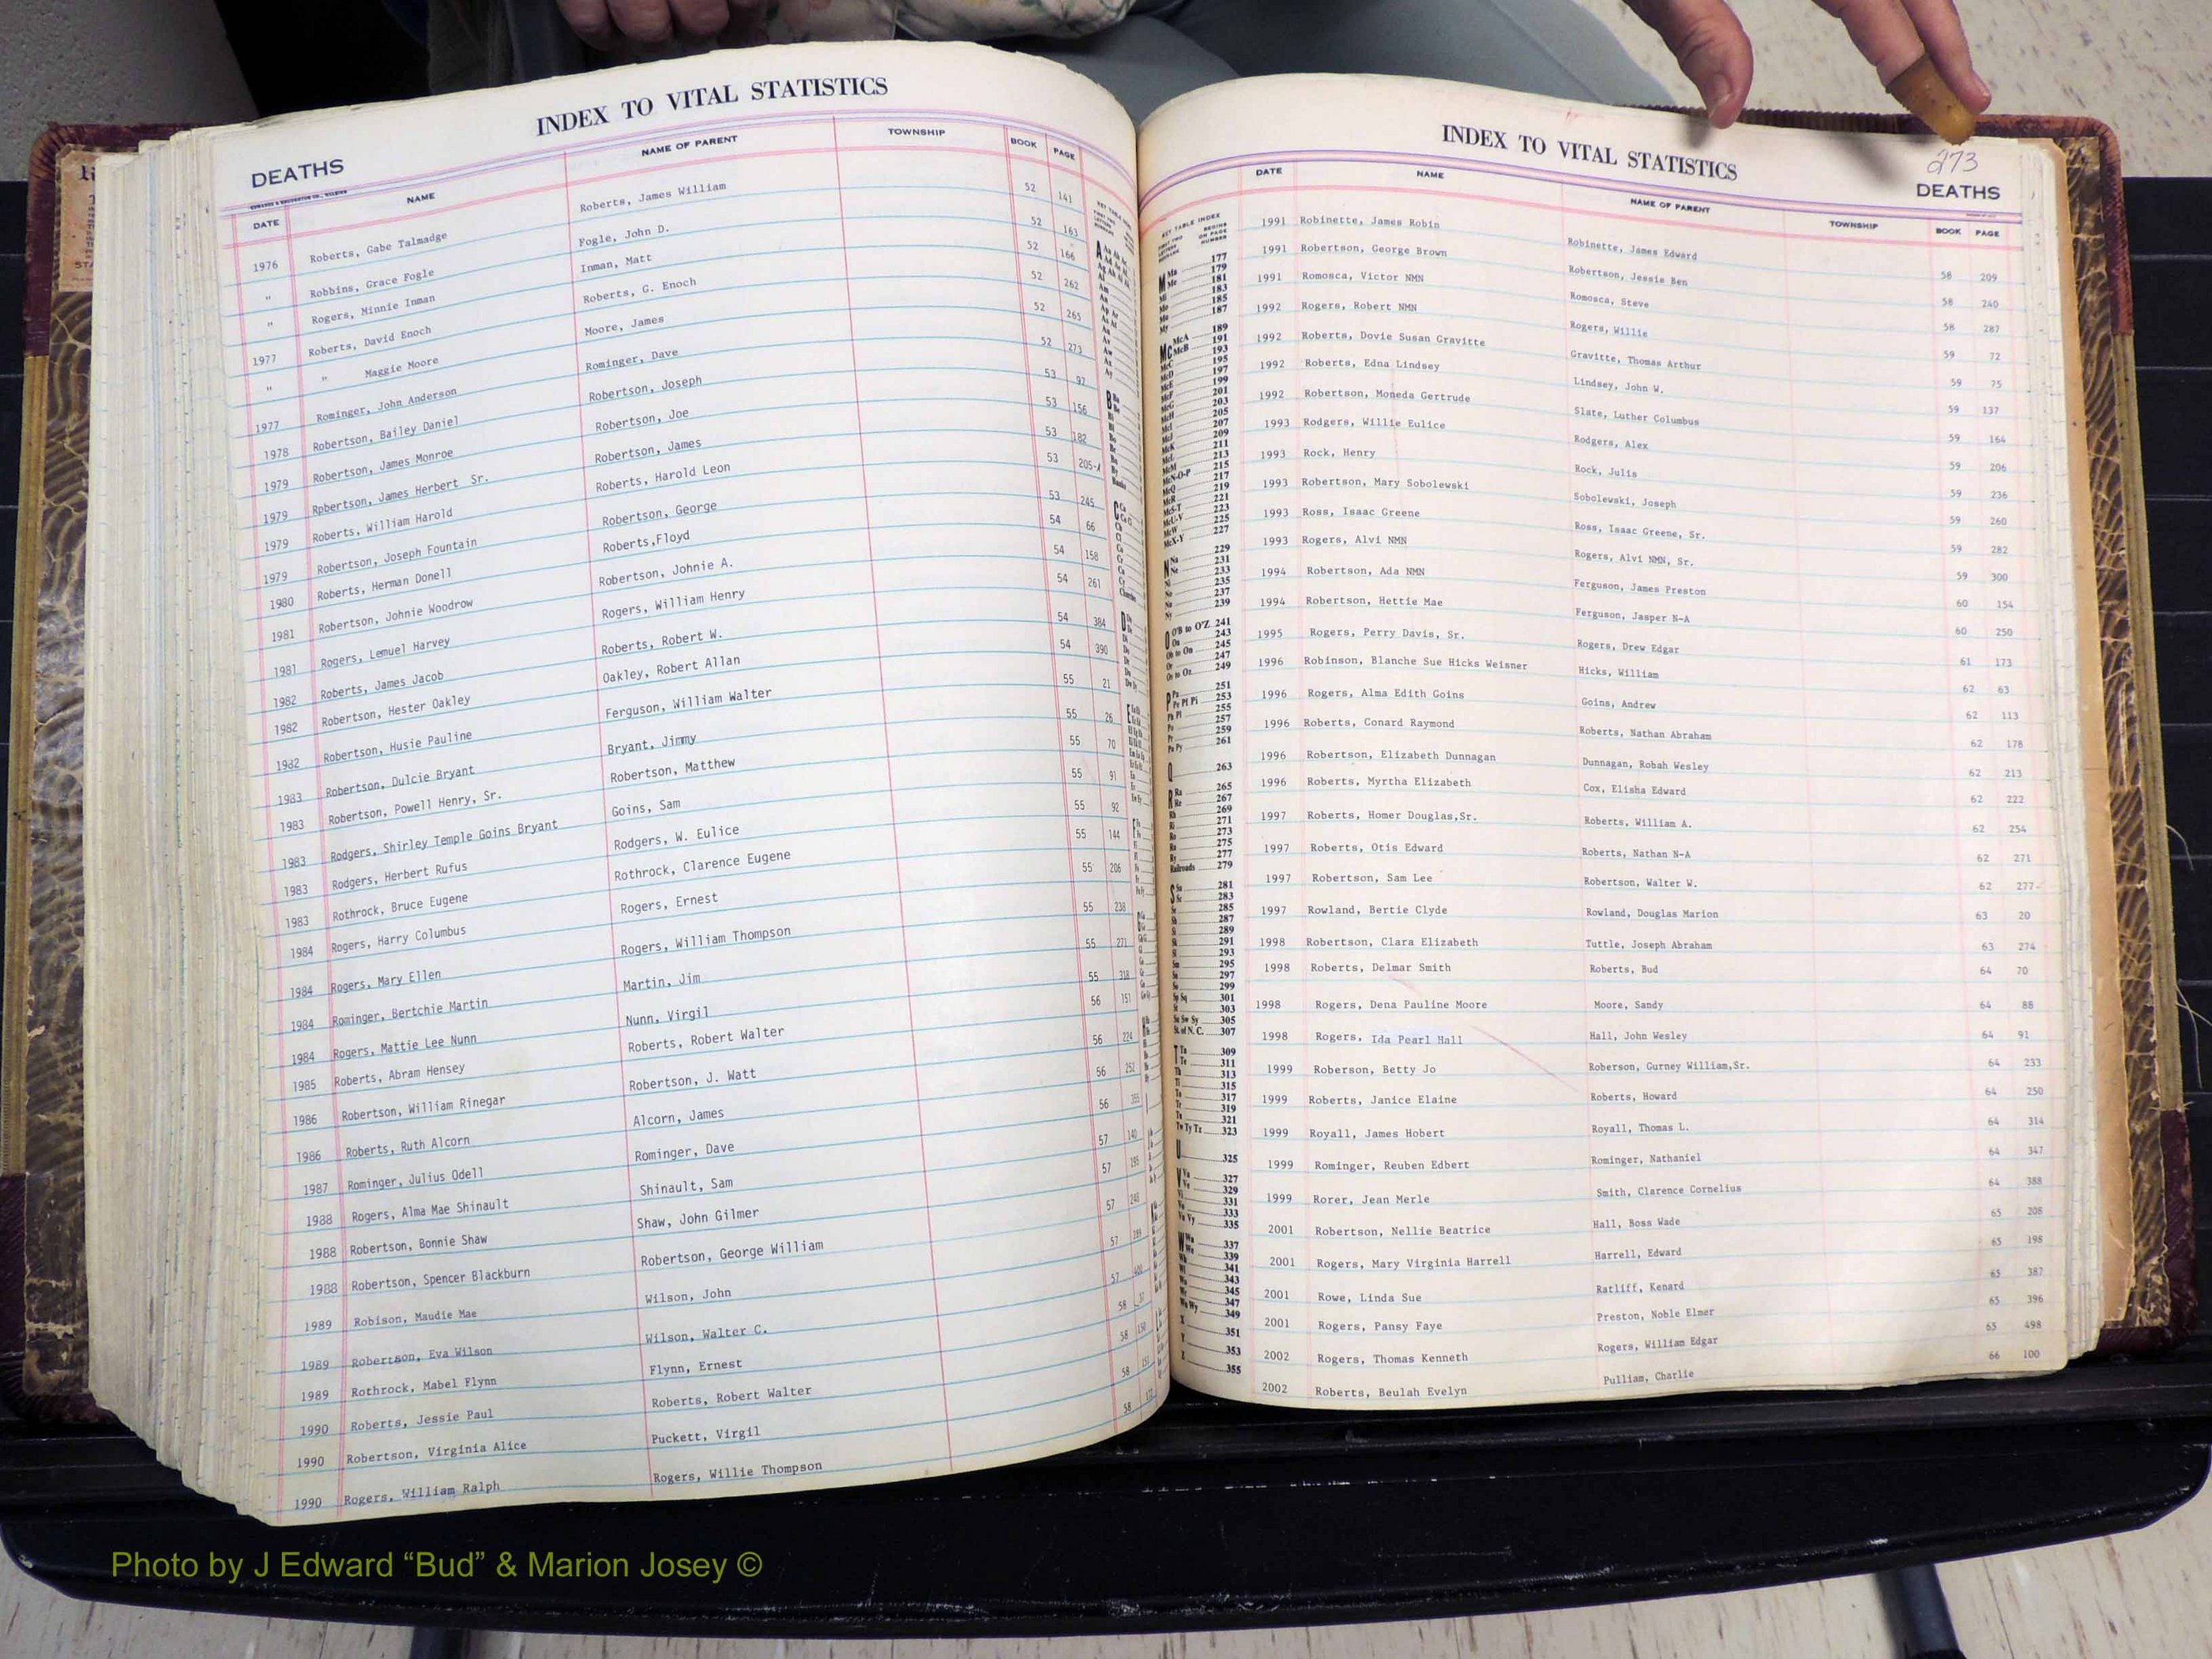 INDEX TO VITAL STATISTICS
DEATHS
DATE NAME NAME OF PARENT TOWNSHIP BOOK PAGE
1976 Roberts, Gabe Talmadge Roberts, James William 52 141
" Robbins, Grace Fogle Fogle, John D. 52 163
" Rogers, Minnie Inman Inman, Matt 52 166
1977 Roberts, David Enoch Roberts, G. Enoch 52 262
" " Maggie Moore Moore, James 52 265
1977 Rominger, John Anderson Rominger, Dave 52 273
1978 Robertson, Bailey Daniel Robertson, Joseph 53 97
1979 Robertson, James Monroe Robertson, Joe 53 156
1979 Rpbertson, James Herbert Sr. Robertson, James 53 182
1979 Roberts, William Harold Roberts, Harold Leon 53 205-A
1979 Robertson, Joseph Fountain Robertson, George 53 245
1980 Roberts, Herman Donell Roberts,Floyd 54 66
1981 Robertson, Johnie Woodrow Robertson, Johnie A. 54 158
1981 Rogers, Lemuel Harvey Rogers, William Henry 54 261
1982 Roberts, James Jacob Roberts, Robert W. 54 384
1982 Robertson, Hester Oakley Oakley, Robert Allan 54 390
1982 Robertson, Husie Pauline Ferguson, William Walter 55 21
1983 Robertson, Dulcie Bryant Bryant, Jimmy 55 26
1983 Robertson, Powell Henry, Sr. Robertson, Matthew 55 70
1983 Rodgers, Shirley Temple Goins Bryant Goins, Sam 55 91
1983 Rodgers, Herbert Rufus Rodgers, W. Eulice 55 92
1983 Rothrock, Bruce Eugene Rothrock, Clarence Eugene 55 144
1984 Rogers, Harry Columbus Rogers, Ernest 55 206
1984 Rogers, Mary Ellen Rogers, William Thompson 55 238
1984 Rominger, Bertchie Martin Martin, Jim 55 271
1984 Rogers, Mattie Lee Nunn Nunn, Virgil 55 318
1985 Roberts, Abram Hensey Roberts, Robert Walter 56 151
1986 Robertson, William Rinegar Robertson, J. Watt 56 224
1986 Roberts, Ruth Alcorn Alcorn, James 56 252
1987 Rominger, Julius Odell Rominger, Dave 56
1988 Rogers, Alma Mae Shinault Shinault, Sam 57 140
1988 Robertson, Bonnie Shaw Shaw, John Gilmer 57 195
1988 Robertson, Spencer Blackburn Robertson, George William 57 248
1989 Robison, Maudie Mae Wilson, John 57
1989 Robertson, Eva Wilson Wilson, Walter C. 57
1989 Rothrock, Mabel Flynn Flynn, Ernest 58
1990 Roberts, Jessie Paul Roberts, Robert Walter 58
1990 Robertson, Virginia Alice Puckett, Virgil 58
1990 Rogers, William Ralph Rogers, Willie Thompson 58
INDEX TO VITAL STATISTICS
273
DEATHS
DATE NAME NAME OF PARENT TOWNSHIP BOOK PAGE
1991 Robinette, James Robin Robinette, James Edward 58 209
1991 Robertson, George Brown Robertson, Jessie Ben 58 240
1991 Romosca, Victor NMN Romosca, Steve 58 287
1992 Rogers, Robert NMN Rogers, Willie 59 72
1992 Roberts, Dovie Susan Gravitte Gravitte, Thomas Arthur 59 75
1992 Roberts, Edna Lindsey Lindsey, John W. 59 137
1992 Robertson, Moneda Gertrude Slate, Luther Columbus 59 164
1993 Rodgers, Willie Eulice Rodgers, Alex 59 206
1993 Rock, Henry Rock, Julis 59 236
1993 Robertson, Mary Sobolewski Sobolewski, Joseph 59 260
1993 Ross, Isaac Greene Ross, Isaac Greene, Sr. 59 282
1993 Rogers, Alvi NMN Rogers, Alvi NMN, Sr. 59 300
1994 Robertson, Ada NMN Ferguson, James Preston 60 154
1994 Robertson, Hettie Mae Ferguson, Jasper N-A 60 250
1995 Rogers, Perry Davis, Sr. Rogers, Drew Edgar 61 173
1996 Robinson, Blanche Sue Hicks Weisner Hicks, William 62 63
1996 Rogers, Alma Edith Goins Goins, Andrew 62 113
1996 Roberts, Conard Raymond Roberts, Nathan Abraham 62 178
1996 Robertson, Elizabeth Dunnagan Dunnagan, Robah Wesley 62 213
1996 Roberts, Myrtha Elizabeth Cox, Elisha Edward 62 222
1997 Roberts, Homer Douglas,Sr. Roberts, William A. 62 254
1997 Roberts, Otis Edward Roberts, Nathan N-A 62 271
1997 Robertson, Sam Lee Robertson, Walter W. 62 277
1997 Rowland, Bertie Clyde Rowland, Douglas Marion 63 20
1998 Robertson, Clara Elizabeth Tuttle, Joseph Abraham 63 274
1998 Roberts, Delmar Smith Roberts, Bud 64 70
1998 Rogers, Dena Pauline Moore Moore, Sandy 64 88
1998 Rogers, Ida Pearl Hall Hall, John Wesley 64 91
1999 Roberson, Betty Jo Roberson, Gurney William,Sr. 64 233
1999 Roberts, Janice Elaine Roberts, Howard 64 250
1999 Royall, James Hobert Royall, Thomas L. 64 314
1999 Rominger, Reuben Edbert Rominger, Nathaniel 64 347
1999 Rorer, Jean Merle Smith, Clarence Cornelius 64 388
2001 Robertson, Nellie Beatrice Hall, Boss Wade 65 208
2001 Rogers, Mary Virginia Harrell Harrell, Edward 65 198
2001 Rowe, Linda Sue Ratliff, Kenard 65 387
2001 Rogers, Pansy Faye Preston, Noble Elmer 65 396
2002 Rogers, Thomas Kenneth Rogers, William Edgar 65 498
2002 Roberts, Beulah Evelyn Pulliam, Charlie 66 100
Photo by J Edward “Bud” & Marion Josey ©